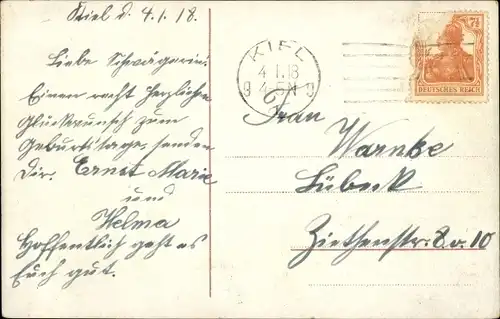 Kiel d. 4.1.18.
Liebe Schwägerin.
Einen recht herzlichen
Glückwunsch zum
Geburtstage, senden
Dir, Ernst Marie
und
Helma
Hoffentlich geht es
Euch gut.
KIEL
4.1.18
7½
DEUTSCHES REICH
Frau
Warnke
Lübeck
Ziethenstr. 8 o. 10